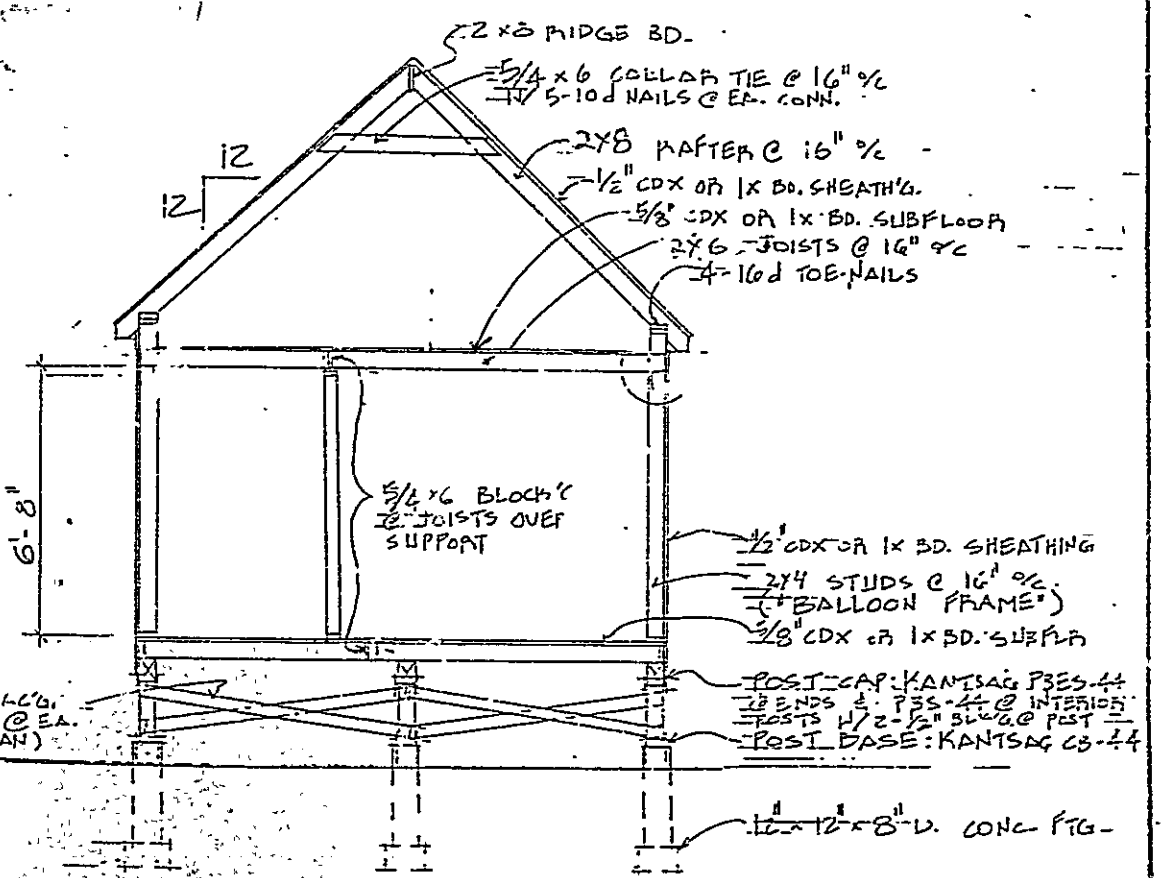 2 x 8 RIDGE BD.
5/4 x 6 COLLAR TIE @ 16" o/c
W/ 5-10d NAILS @ EA. CONN.
2x8 RAFTER @ 16" o/c
1/2" CDX OR 1x BD. SHEATH'G.
5/8" CDX OR 1x BD. SUBFLOOR
2x6 JOISTS @ 16" o/c
4-16d TOE-NAILS
12
12
6'-8"
5/4 x6 BLOCK'G
@ JOISTS OVER
SUPPORT
1/2" CDX OR 1x BD. SHEATHING
2x4 STUDS @ 16" o/c
("BALLOON FRAME")
5/8" CDX OR 1x BD. SUBFLR
POST CAP: KANTSAG PBES-44
@ ENDS & PBS-44 @ INTERIOR
POSTS W/ 2-1/2" @ POST
POST BASE: KANTSAG CB-44
LC'G.
@ EA.
AN)
12" x 12" x 8" D. CONC FTG